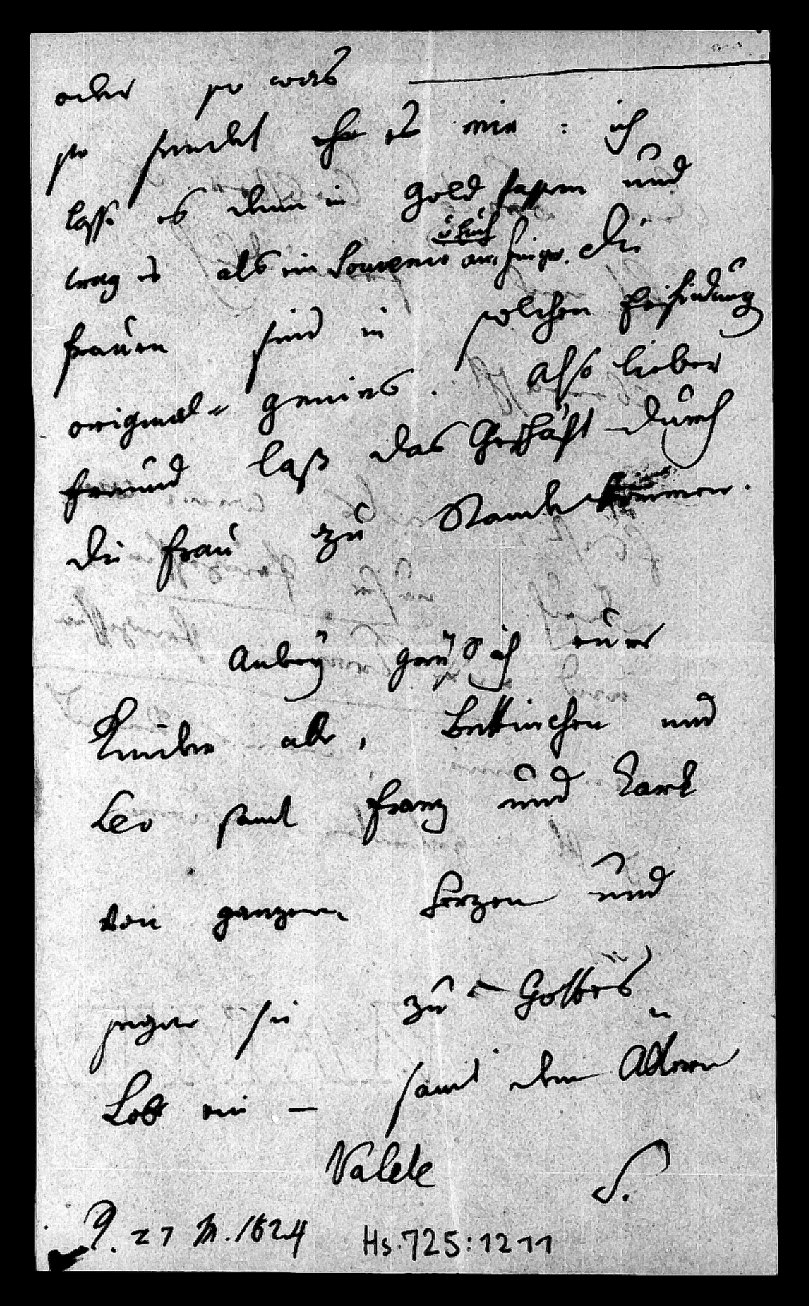 oder so was
so sendet ihr es mir : ich
lasse es dann in Gold fassen und
trag es als ein Souvenir am Finger. Die
Frauen sind in solchen Erfindung
original-genies. Also lieber
Freund laß das Geschäft durch
die Frau zu Stande kommen.
Anbey grüß ich eure
Kinder all, Bettinchen und
Leo samt Franz und Karl
von ganzem Herzen und
segne sie zu Gottes
Lob ein – samt den Ältern
Valete S.
P. 27 M. 1824 Hs. 725:1211